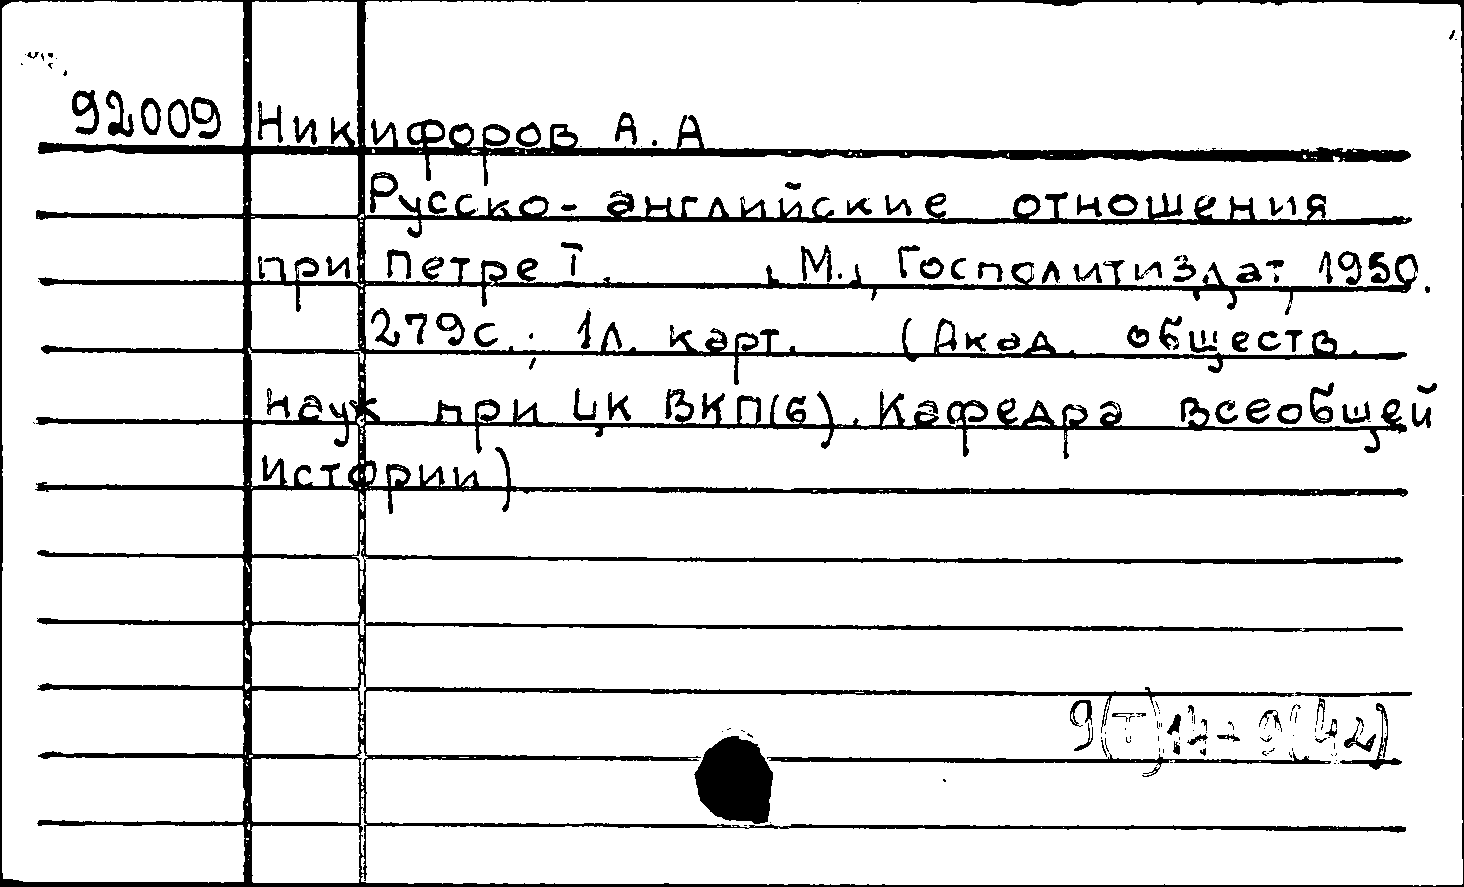 92009 Никифоров А. А
Русско-английские отношения
при Петре I. , М., Госполитиздат, 1950.
279с.; 1л. карт. (Акад. обществ.
наук при ЦК ВКП(б). Кафедра всеобщей
истории)
9(Т)14-9(42)